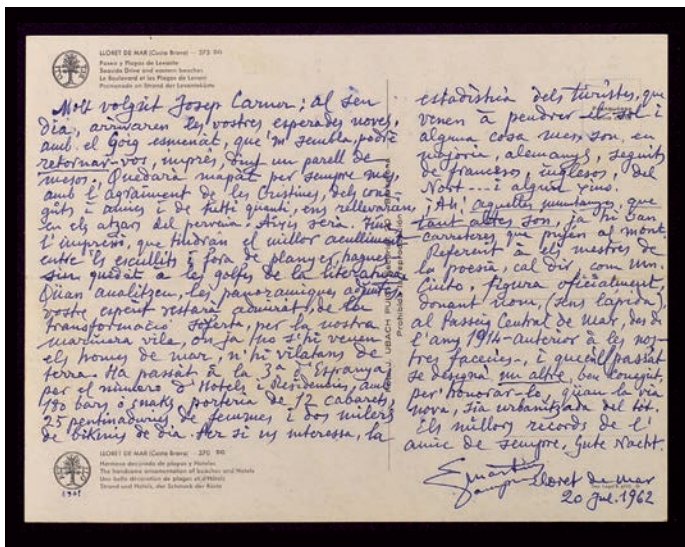 LLORET DE MAR (Costa Brava) - 373
Paseo y Playas de Levante
Seaside Drive and eastern beaches
Le Boulevard et les Plages de Levant
Promenade en Strand der Levantekuste
Molt volgut Josep Carner; al seu
dia, arrivaren les vostres esperades noves,
amb el Goig esmenat, que'm sembla, podré
retornar-vos, imprès, dins un parell de
mesos. Quedarà mapat per sempre mes,
amb l'agraiment de les Cristines, dels cone-
guts i amics i de tutti quanti, ens rellevaran
en els atzars del pervenir. Aixis serà.
l'imprenti, que tindran el millor aculliment
entre'ls escullits i fora de planyer, hagues-
sin quedat à les golfes de la literatura
Quan analitzen, les panoramiques adjuntes,
vostre esperit restarà admirat, de la
transformació soferta, per la nostra
marinera vila, on ja no s'hi veuen
els homes de mar, n'hi vilatans de
terra. Ha passat à la 3ª d'Espanya
per el numero d'Hotels i Residencies, amb
180 bars ò snaks, porteria de 12 cabarets,
25 pentinadurias de femmes i dos milers
de bikinis de dia. Per si us interessa, la
LLORET DE MAR (Costa Brava) - 370
Hermoso decorado de playas y Hoteles
The handsome ornamentation of beaches and Hotels
Une belle décoration de plages et d'Hôtels
Strand und Hotels, der Schmuck der Küste
UBACH PUIG
Prohibida la reproducción
estadistica dels turistes, que
venen à pendrer el sol i
alguna cosa mes, son, en
majoria, alemanys, seguits
de francesos, inglesos, del
Nort --- i algun xino.
¡Ah! aquelles muntanyes, que
tant altes son, ja hi han
carreteres que pugen al mont.
Referent à els mestres de
la poesia, cal dir, com Mn.
Cinto, figura oficialment,
donant nom, (sens lapida),
al Passeig Central de Mar, des de
l'any 1914 - anterior à les nos-
tres faceies -, i que l'any passat
se designà un altre, ben conegut,
per honorar-lo, quan la via
nova, sia urbanitzada del tot.
Els millors records de l'
amic de sempre, Gute Nacht.
Lloret de mar
20 jul. 1962